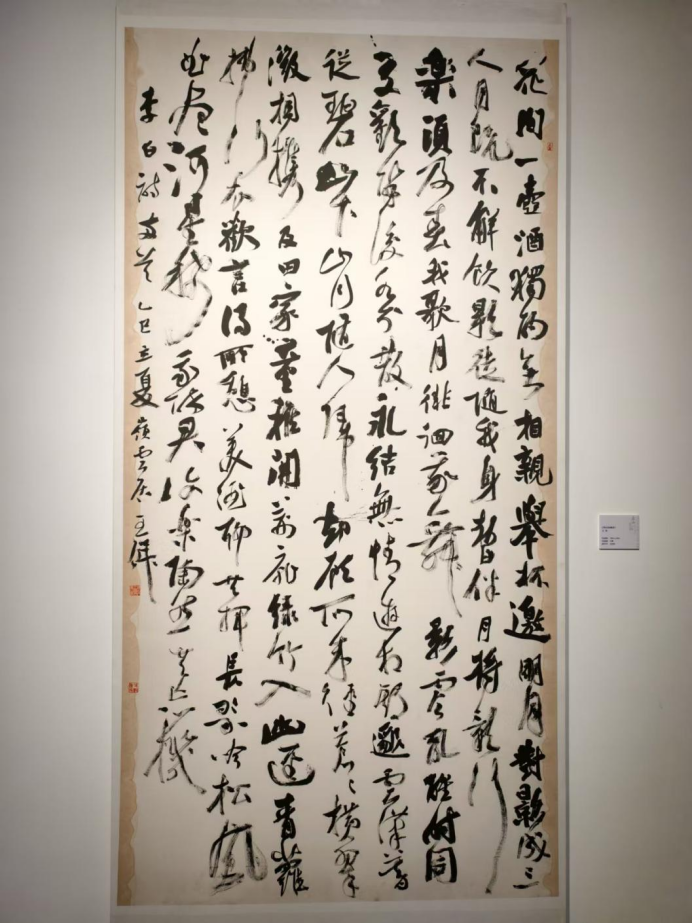 花間一壺酒獨酌無相親舉杯邀明月對影成三
人月既不解飲影徒隨我身暫伴月將影行
樂須及春我歌月徘徊我舞影零亂醒時同
交歡醉後各分散永結無情遊相期邈雲漢暮
從碧山下山月隨人歸却顧所來徑蒼々橫翠
微相攜及田家童稚開荊扉綠竹入幽徑青蘿
拂行衣歡言得所憩美酒聊共揮長歌吟松風
曲盡河星稀我醉君復樂陶然共忘機
李白詩两首乙巳立夏嶺雲居王偉